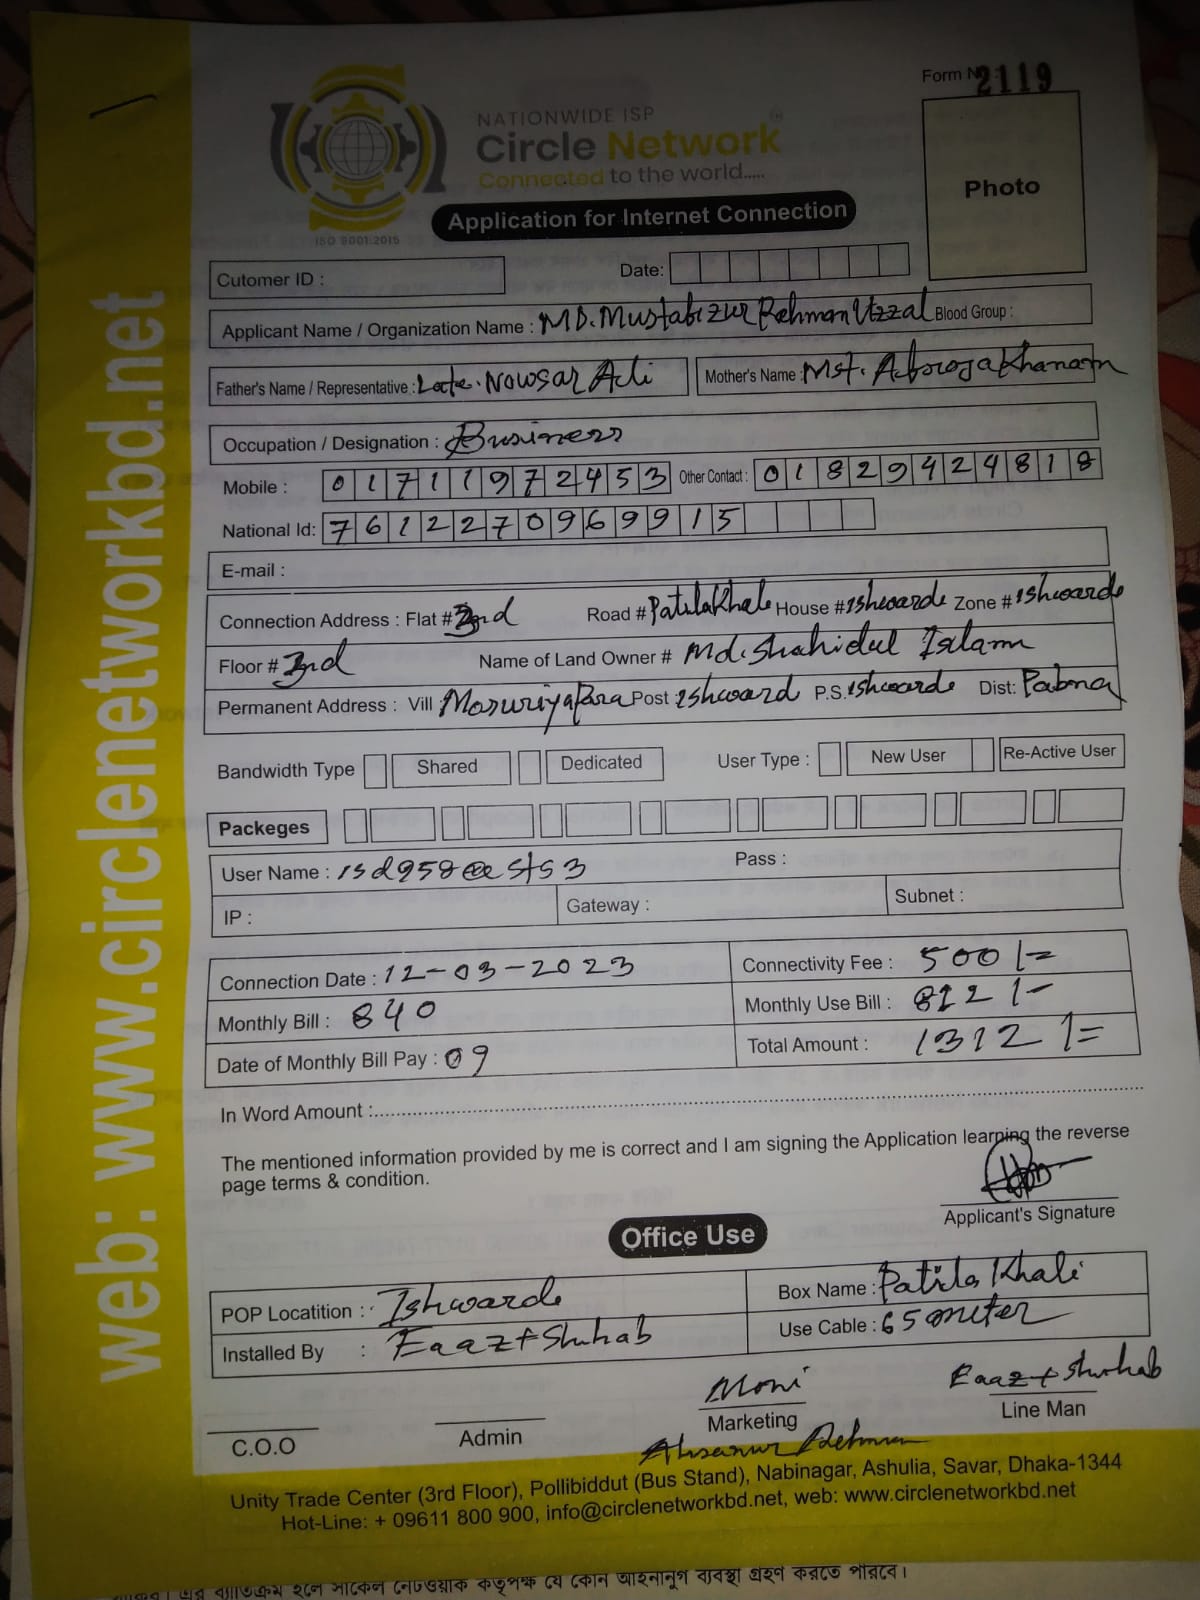 Form No: 2119
NATIONWIDE ISP
Circle Network
Connected to the world.....
ISO 9001:2015
Application for Internet Connection
Photo
Cutomer ID :
Date:
Applicant Name / Organization Name : MD. Mustafizur Rahman Uzzal Blood Group :
Father's Name / Representative : Late. Nowsar Ali Mother's Name : Mst. Afroja Khanam
Occupation / Designation : Business
Mobile : 01711972453 Other Contact : 01829424818
National Id: 7612270969915
E-mail :
Connection Address : Flat # 2nd Road # Patilakhali House # ishwarde Zone # ishwarde
Floor # 2nd Name of Land Owner # Md. Shahidul Islam
Permanent Address : Vill Moruriyapara Post : ishward P.S. ishwarde Dist: Pabna
Bandwidth Type Shared Dedicated User Type : New User Re-Active User
Packeges
User Name : isd958@sts3 Pass :
IP : Gateway : Subnet :
Connection Date : 12-03-2023 Connectivity Fee : 500/=
Monthly Bill : 840 Monthly Use Bill : 812/-
Date of Monthly Bill Pay : 09 Total Amount : 1312/=
In Word Amount :
The mentioned information provided by me is correct and I am signing the Application learning the reverse
page terms & condition.
Applicant's Signature
Office Use
POP Locatition : Ishwarde Box Name : Patila Khali
Installed By : Eaaz + Shuhab Use Cable : 65 meter
Moni Eaaz + Shuhab
C.O.O Admin Marketing Line Man
Ahsanur Rehman
Unity Trade Center (3rd Floor), Pollibiddut (Bus Stand), Nabinagar, Ashulia, Savar, Dhaka-1344
Hot-Line: + 09611 800 900, info@circlenetworkbd.net, web: www.circlenetworkbd.net
web: www.circlenetworkbd.net
এর ব্যতিক্রম হলে সার্কেল নেটওয়ার্ক কতৃপক্ষ যে কোন আইনানুগ ব্যবস্থা গ্রহণ করতে পারবে।